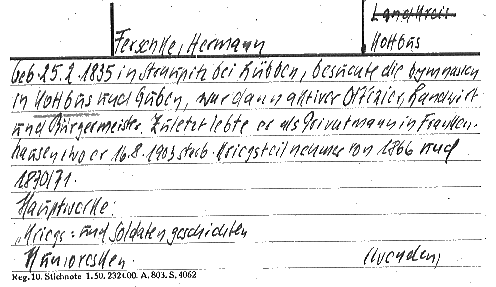 Landkreis
Ferschke, Hermann Kottbus
geb. 25.2.1835 in Straupitz bei Lübben, besuchte die Gymnasien
in Kottbus und Guben, war dann aktiver Offizier, Landwirt
und Bürgermeister. Zuletzt lebte er als Privatmann in Franken-
hausen, wo er 16.8.1903 starb. Kriegsteilnehmer von 1866 und
1870/71.
Hauptwerke:
„Kriegs- und Soldatengeschichten
Humoresken. (Wenden)
Reg. 10. Stichnote 1. 50. 232400. A, 803. S, 4062